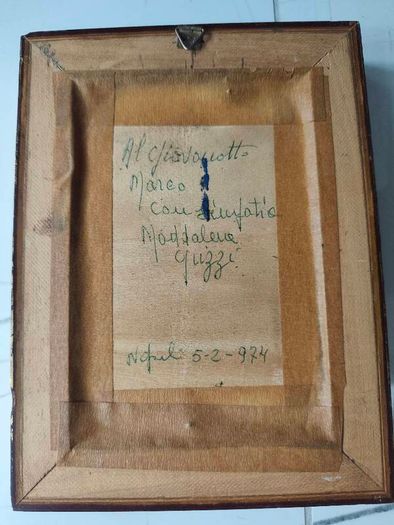 Al Giovanotto
Marco
Con simpatia
Maddalena
Guzzi
Napoli 5-2-974